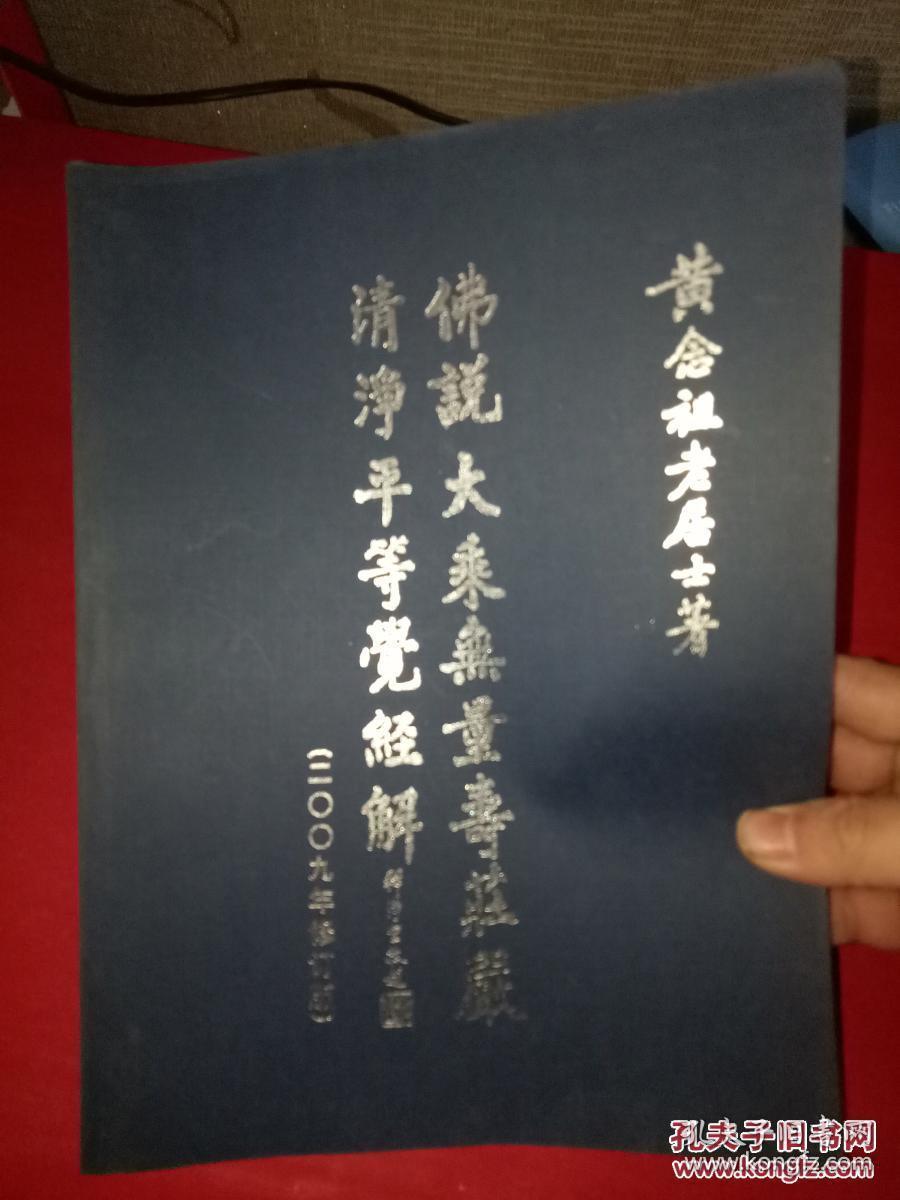 黄念祖老居士著
佛説大乘無量壽莊嚴
清淨平等覺經解
(二〇〇九年修訂版)
孔夫子旧书网
www.kongfz.com